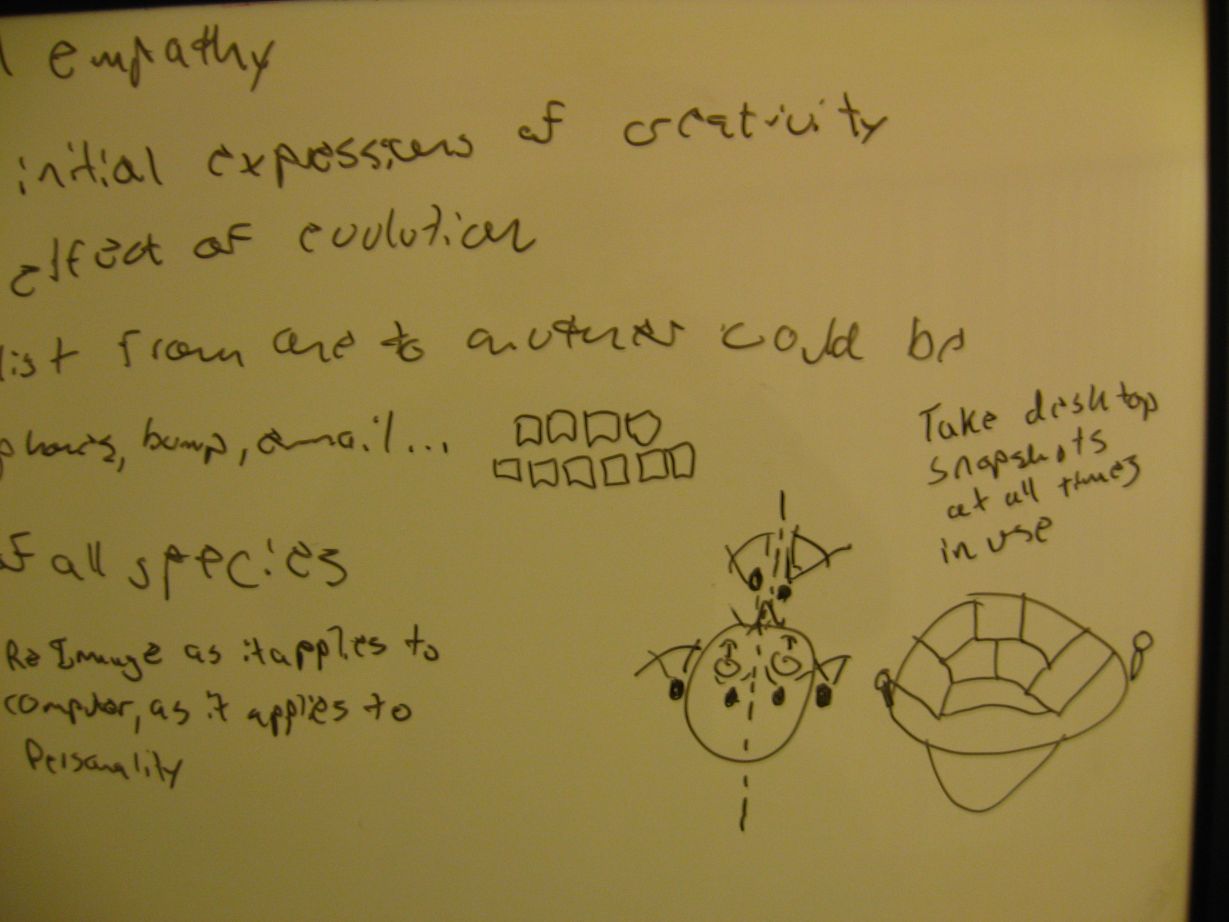 empathy
initial expressions of creativity
effect of evolution
list from one to another could be
phones, bump, email...
Take desktop
snapshots
at all times
in use
of all species
Re Image as it applies to
computer, as it applies to
Personality